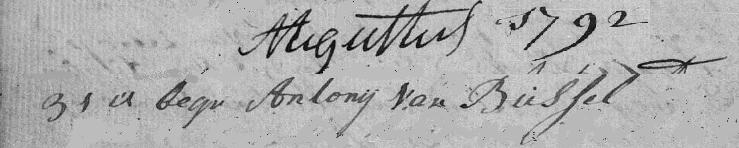 Augustus 1792
31 a begr Antony van Büssel